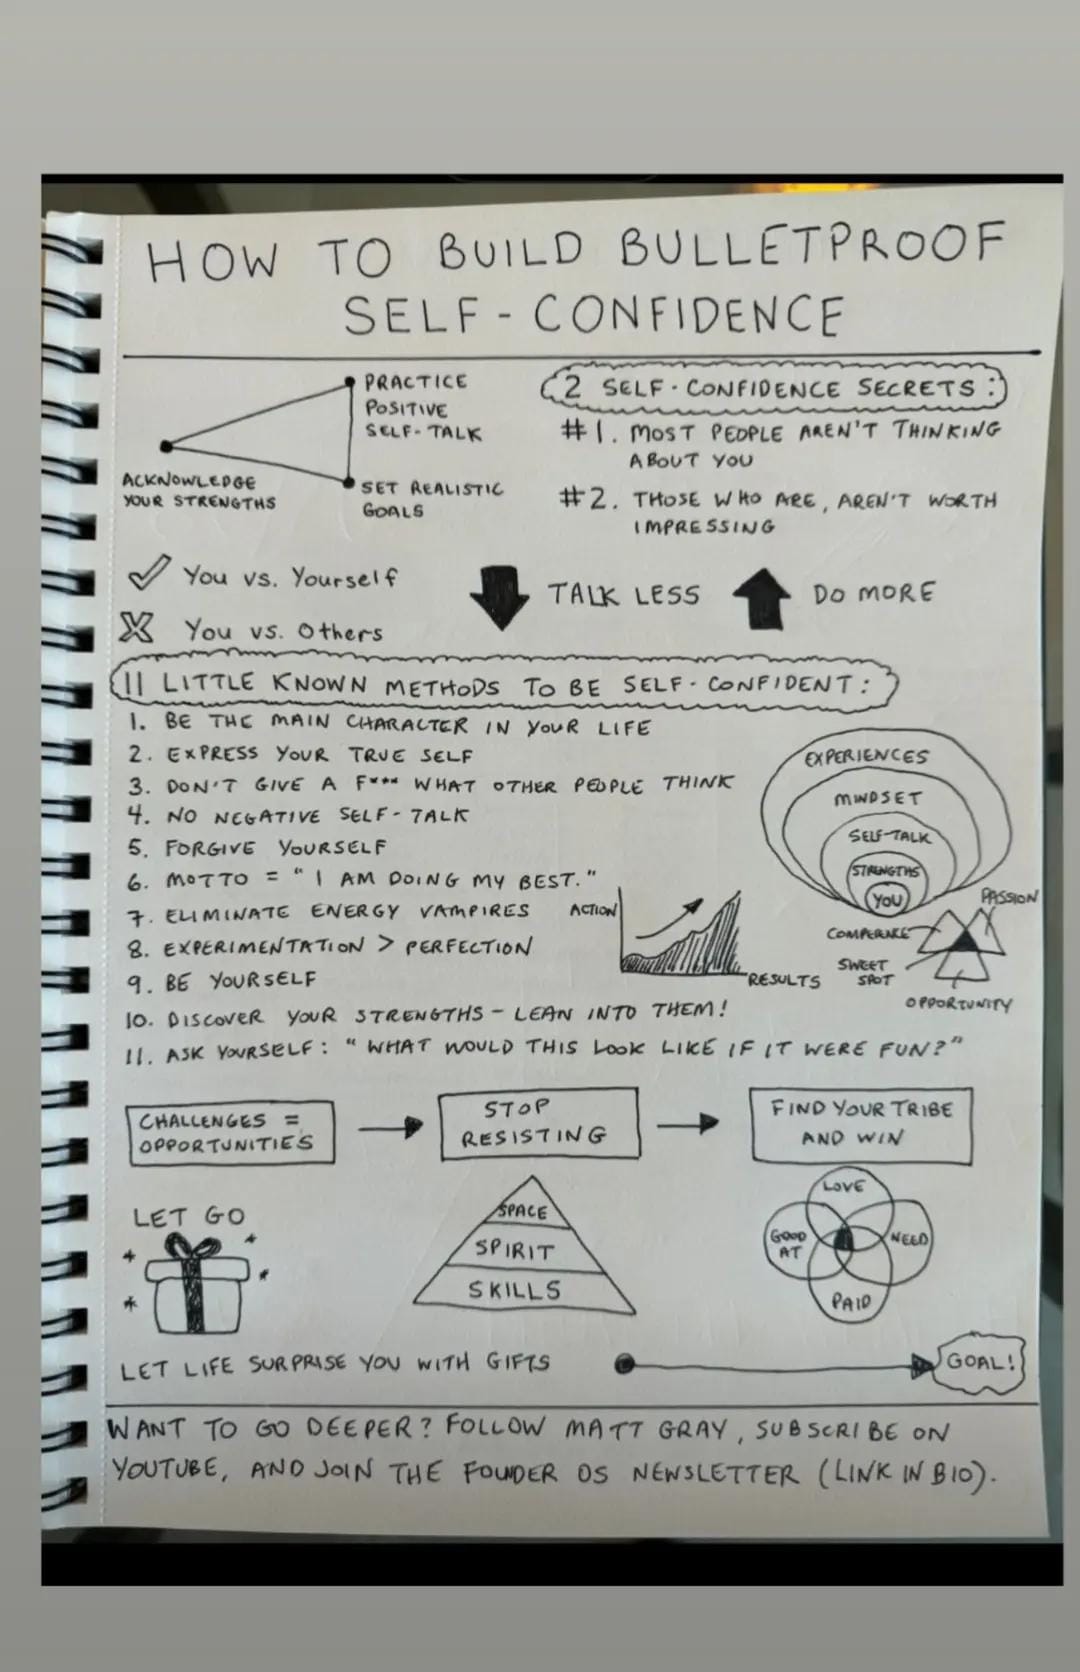 HOW TO BUILD BULLETPROOF
SELF-CONFIDENCE
PRACTICE
POSITIVE
SELF-TALK
ACKNOWLEDGE
YOUR STRENGTHS
SET REALISTIC
GOALS
2 SELF-CONFIDENCE SECRETS:
#1. MOST PEOPLE AREN'T THINKING
ABOUT YOU
#2. THOSE WHO ARE, AREN'T WORTH
IMPRESSING
You vs. Yourself
You vs. Others
TALK LESS
DO MORE
11 LITTLE KNOWN METHODS TO BE SELF-CONFIDENT:
1. BE THE MAIN CHARACTER IN YOUR LIFE
2. EXPRESS YOUR TRUE SELF
3. DON'T GIVE A F*** WHAT OTHER PEOPLE THINK
4. NO NEGATIVE SELF-TALK
5. FORGIVE YOURSELF
6. MOTTO = "I AM DOING MY BEST."
7. ELIMINATE ENERGY VAMPIRES
8. EXPERIMENTATION > PERFECTION
9. BE YOURSELF
10. DISCOVER YOUR STRENGTHS - LEAN INTO THEM!
11. ASK YOURSELF: "WHAT WOULD THIS LOOK LIKE IF IT WERE FUN?"
EXPERIENCES
MINDSET
SELF-TALK
STRENGTHS
YOU
ACTION
RESULTS
PASSION
SWEET
SPOT
OPPORTUNITY
CHALLENGES =
OPPORTUNITIES
STOP
RESISTING
FIND YOUR TRIBE
AND WIN
LET GO
SPACE
SPIRIT
SKILLS
LOVE
GOOD
AT
NEED
PAID
LET LIFE SURPRISE YOU WITH GIFTS
GOAL!
WANT TO GO DEEPER? FOLLOW MATT GRAY, SUBSCRIBE ON
YOUTUBE, AND JOIN THE FOUNDER OS NEWSLETTER (LINK IN BIO).